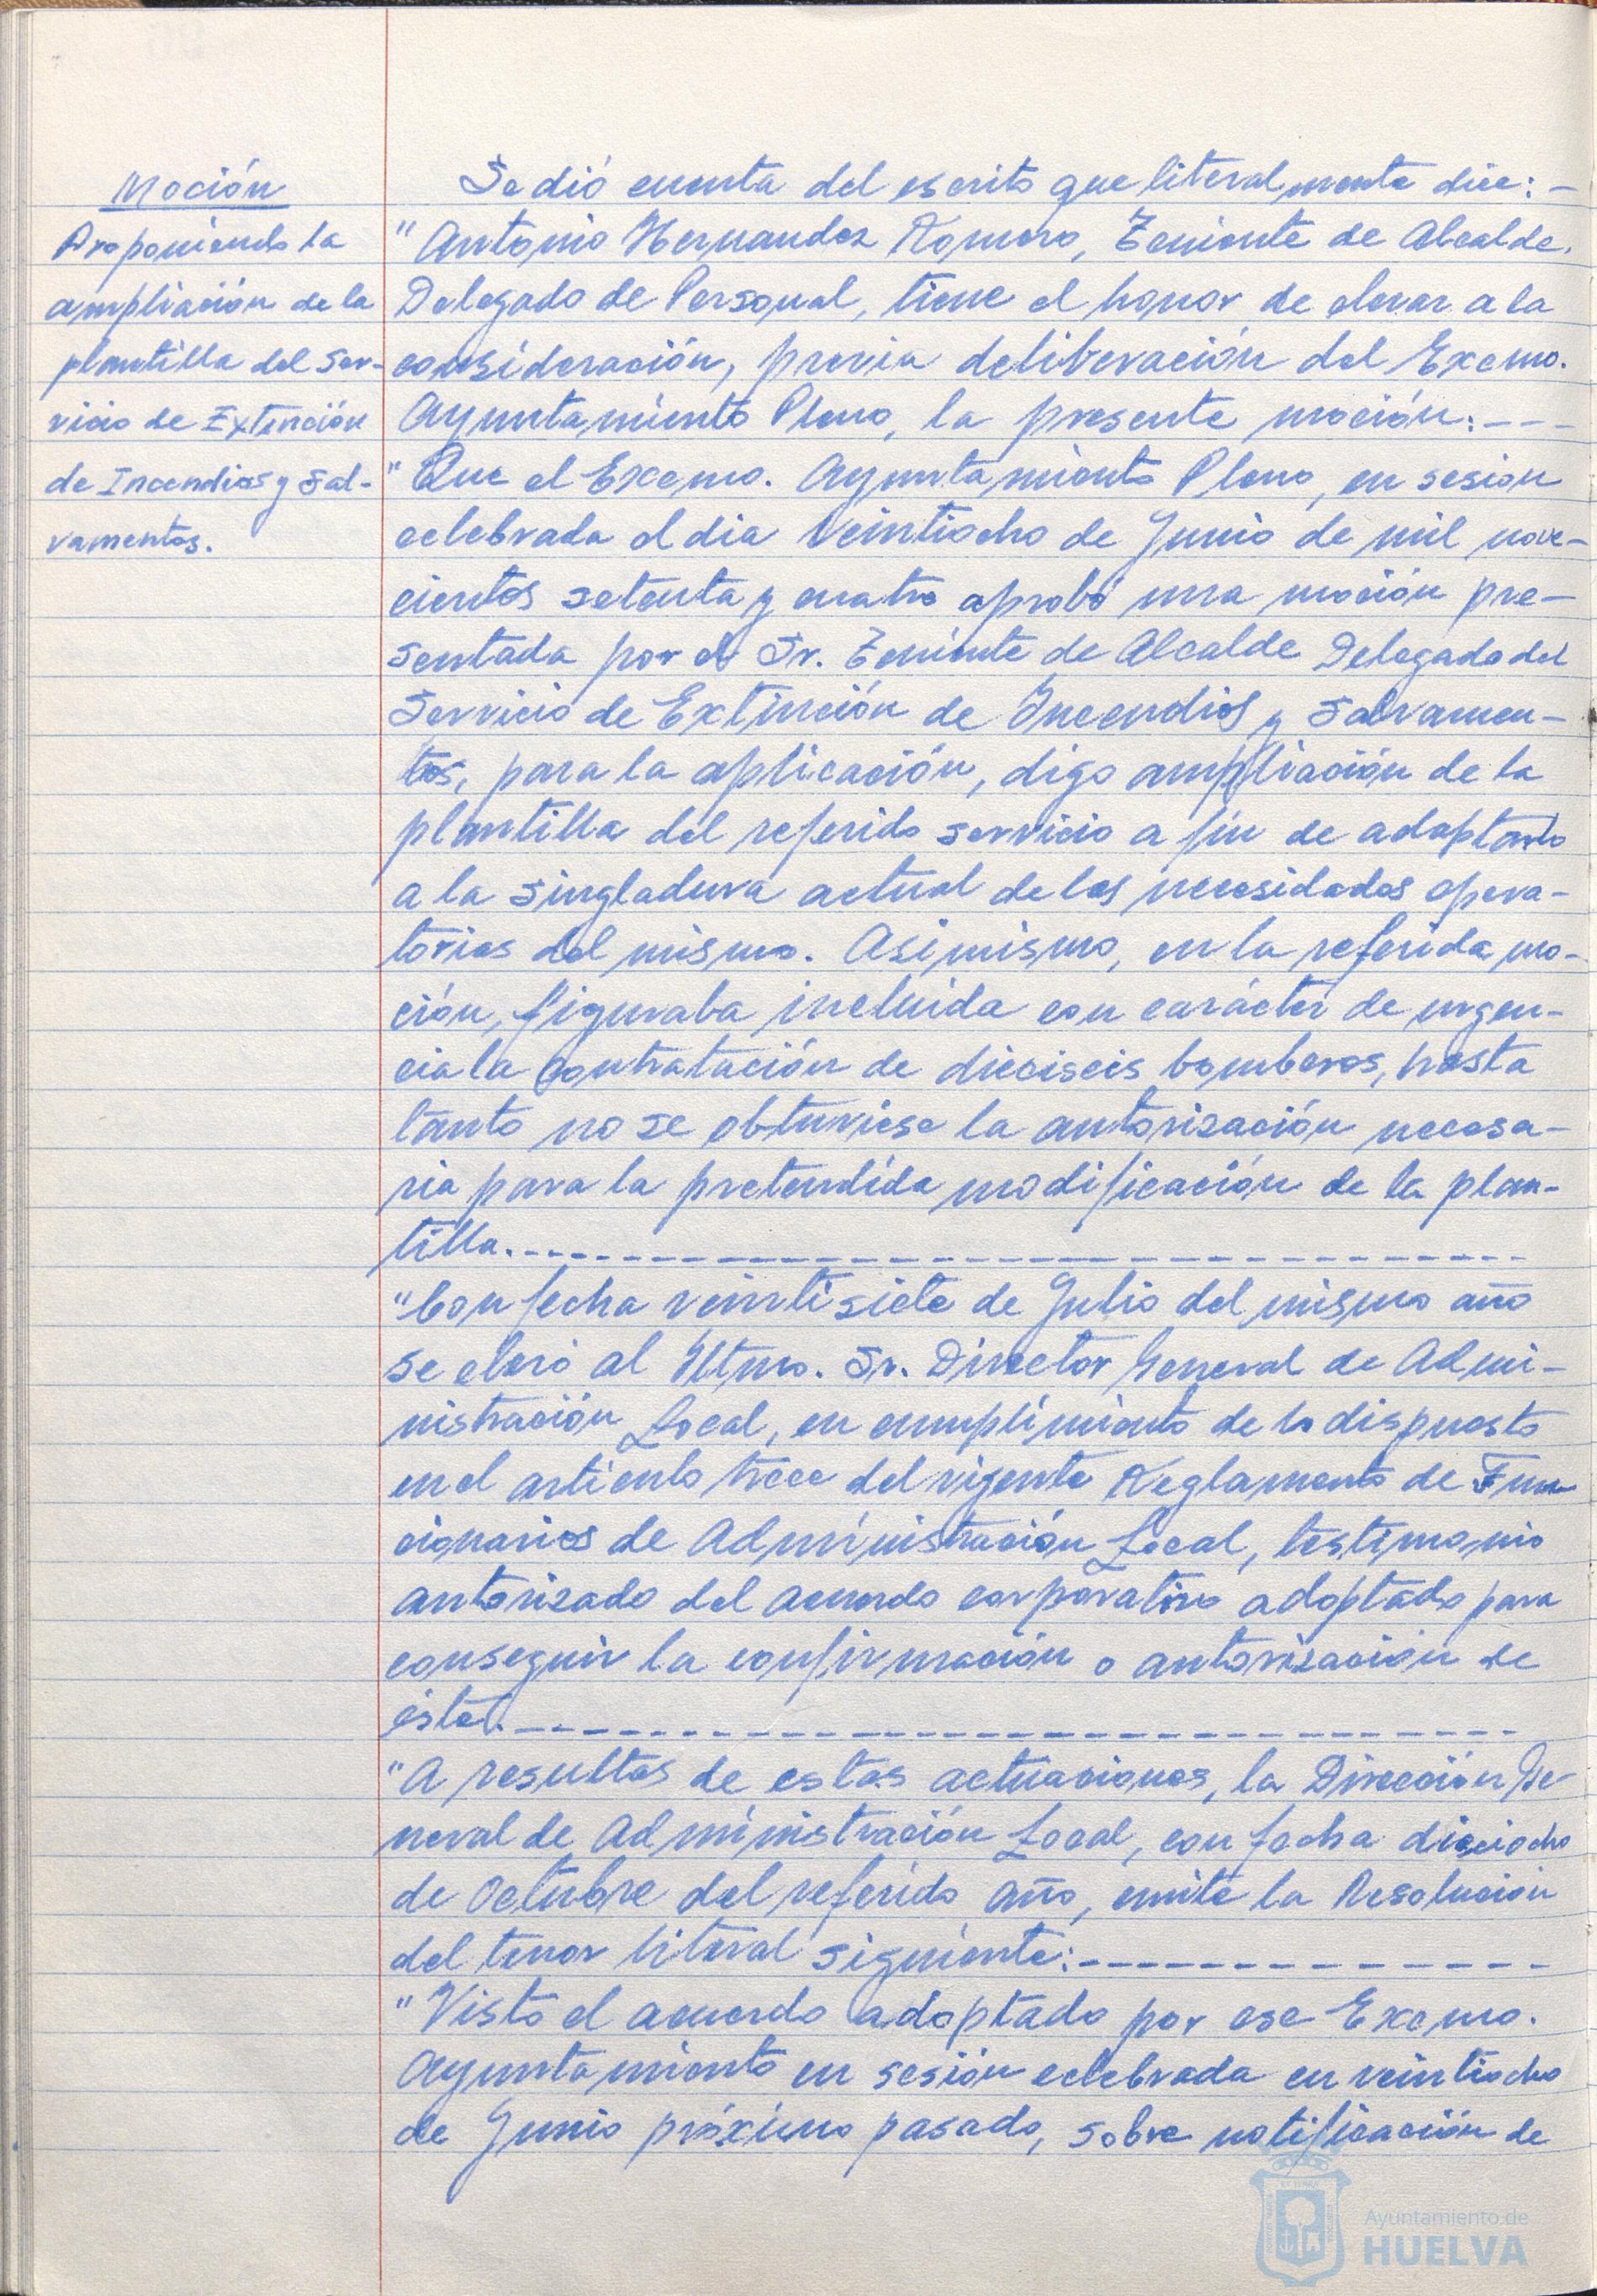 Moción
Proponiendo la
ampliación de la
plantilla del Ser-
vicio de Extinción
de Incendios y Sal-
vamentos.
Se dió cuenta del escrito que literalmente dice: –
"Antonio Hernandez Romero, Teniente de Alcalde,
Delegado de Personal, tiene el honor de elevar a la
consideración, previa deliberación del Excmo.
Ayuntamiento Pleno, la presente moción: - - -
"Que el Excmo. Ayuntamiento Pleno, en sesion
celebrada el dia Veintiocho de Junio de mil nove-
cientos setenta y cuatro aprobó una moción pre-
sentada por el Sr. Teniente de Alcalde Delegado del
Servicio de Extinción de Incendios y Salvamen-
tos, para la aplicación, digo ampliación de la
plantilla del referido servicio a fin de adaptarlo
a la singladura actual de las necesidades opera-
torias del mismo. Asimismo, en la referida mo-
ción, figuraba incluida con carácter de urgen-
cia la contratación de dieciseis bomberos, hasta
tanto no se obtuviese la autorización necesa-
ria para la pretendida modificación de la plan-
tilla. - - - - - - - - - - - - - - - - - - - -
"Con fecha veintisiete de Julio del mismo año
se elevó al Iltmo. Sr. Director General de Admi-
nistración Local, en cumplimiento de lo dispuesto
en el artículo trece del vigente Reglamento de Fun
cionarios de Administración Local, testimonio
autorizado del acuerdo corporativo adoptado para
conseguir la confirmación o autorización de
éste. - - - - - - - - - - - - - - - - - - - -
"A resultas de estas actuaciones, la Dirección Ge-
neral de Administración Local, con fecha dieciocho
de Octubre del referido año, emite la Resolución
del tenor literal siguiente: - - - - - - - - - -
"Visto el acuerdo adoptado por ese Excmo.
Ayuntamiento en sesión celebrada en veintiocho
de Junio próximo pasado, sobre notificación de
Ayuntamiento de
HUELVA